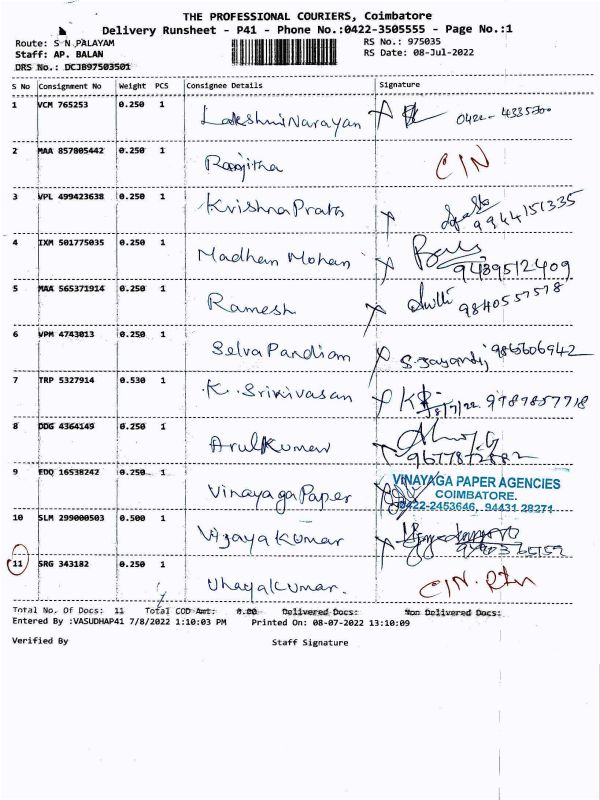 THE PROFESSIONAL COURIERS, Coimbatore
Delivery Runsheet - P41 - Phone No.:0422-3505555 - Page No.:1
Route: S N PALAYAM
RS No.: 975035
Staff: AP. BALAN
RS Date: 08-Jul-2022
DRS No.: DCJB97503501
S No Consignment No Weight PCS Consignee Details Signature
1 VCM 765253 0.250 1 Lakshmi Narayan 0422-4335700
2 MAA 857805442 0.250 1 Ranjitha C/N
3 VPL 499423638 0.250 1 Krishna Prata 9944151335
4 IXM 501775035 0.250 1 Madhan Mohan 9489512409
5 MAA 565371914 0.250 1 Ramesh 9840557578
6 VPM 4743013 0.250 1 Selva Pandiam S. Jayanthi,
7 TRP 5327914 0.530 1 K. Srinivasan 8/7/22 9787857718
8 DDG 4364149 0.250 1 Arul Kumar
9 EDQ 16538242 0.250 1 Vinayaga Paper
VINAYAGA PAPER AGENCIES
COIMBATORE.
0422-2453646, 94431 28271
10 SLM 299000503 0.500 1 Vijaya Kumar
11 SRG 343182 0.250 1 Uhayalcumar. C/N.
Total No. Of Docs: 11 Total COD Amt: 0.00 Delivered Docs: Non Delivered Docs:
Entered By :VASUDHAP41 7/8/2022 1:10:03 PM Printed On: 08-07-2022 13:10:09
Verified By Staff Signature